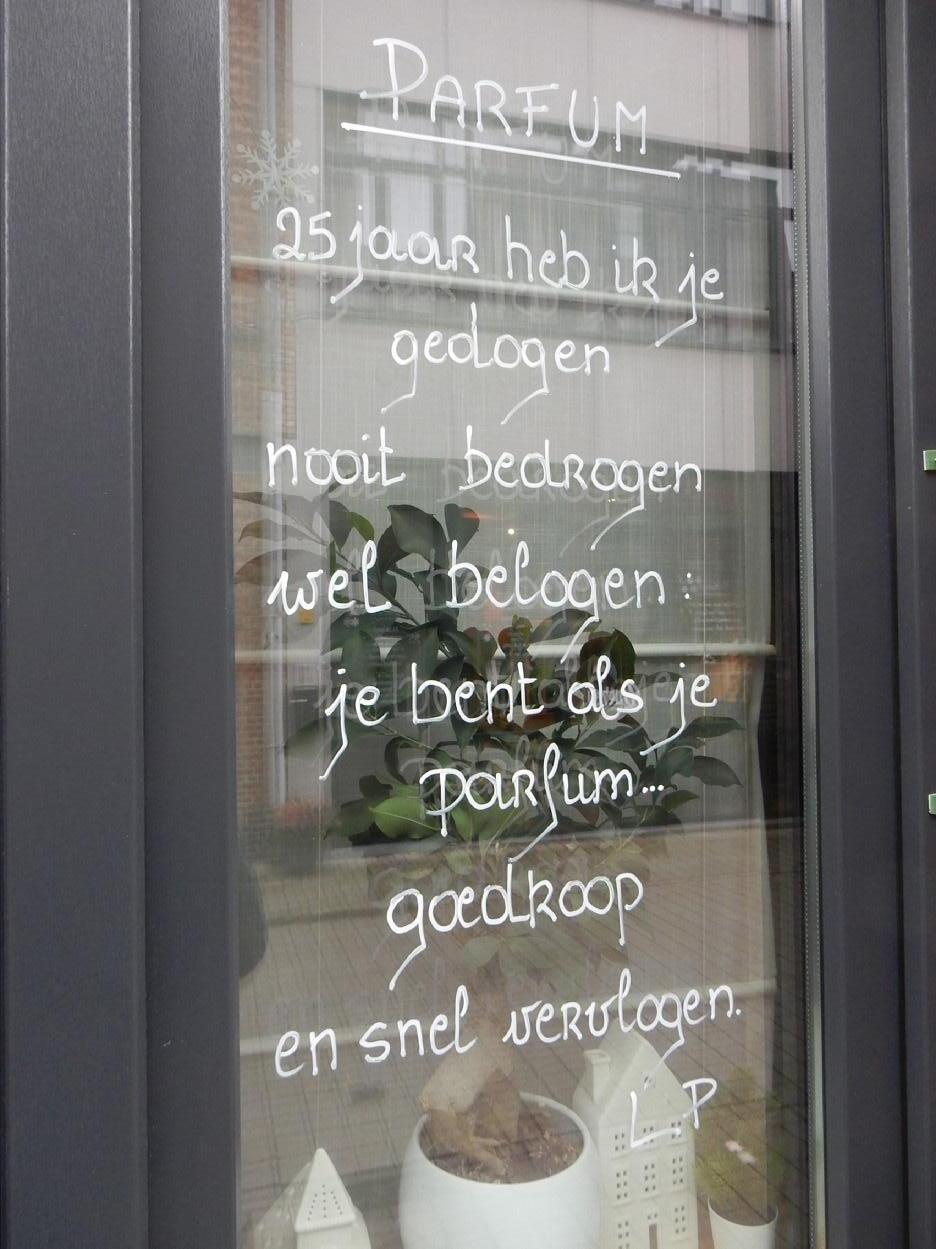 PARFUM
25 jaar heb ik je
gedogen
nooit bedrogen
wel belogen:
je bent als je
parfum...
goedkoop
en snel vervlogen.
LP